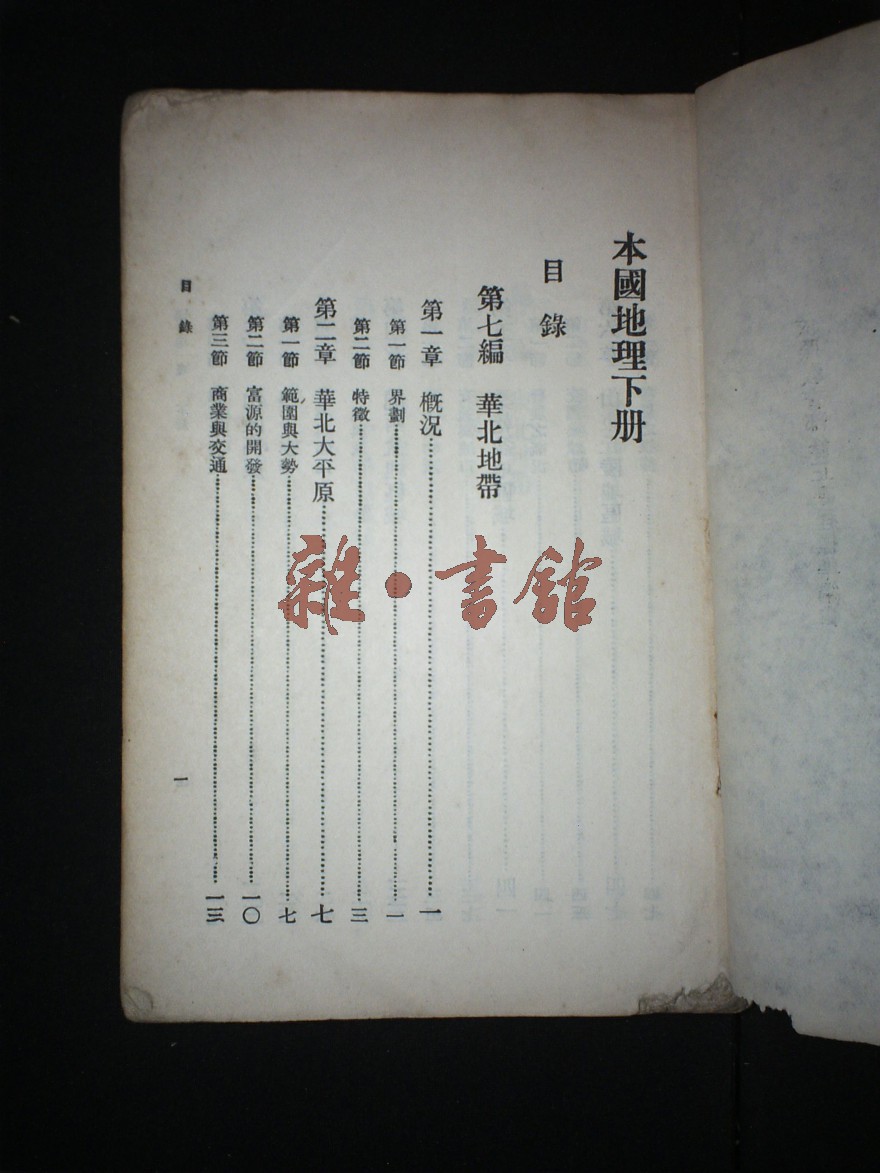 本國地理下册
目錄
第七編　華北地帶
第一章　概況……一
第一節　界劃……一
第二節　特徵……三
第二章　華北大平原……七
第一節　範圍與大勢……七
第二節　富源的開發……一〇
第三節　商業與交通……一三
目錄
一
雜·書館